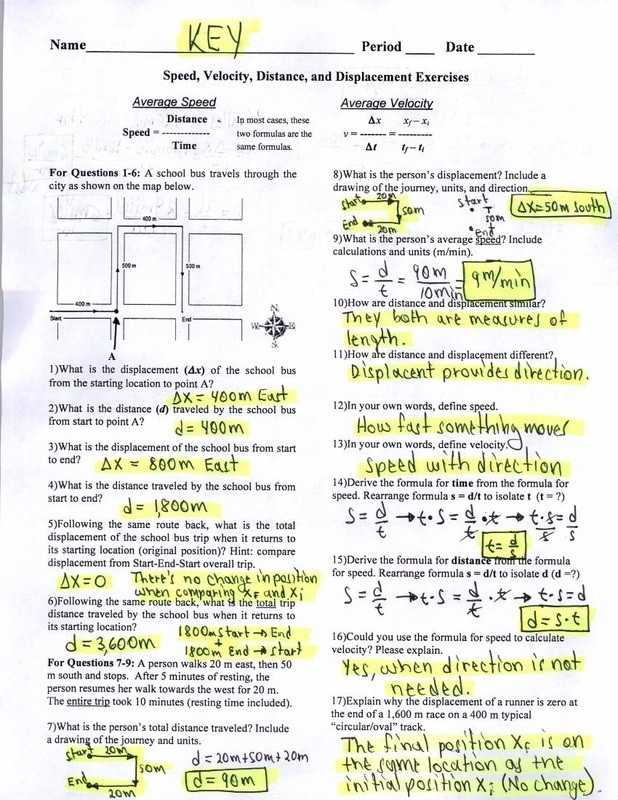 Name KEY Period Date
Speed, Velocity, Distance, and Displacement Exercises
Average Speed
Distance
Speed = -------------
Time
In most cases, these
two formulas are the
same formulas.
Average Velocity
Δx xf – xi
v= ------- = ---------
Δt tf – ti
For Questions 1-6: A school bus travels through the
city as shown on the map below.
400 m
500 m 500 m
400 m
Start End
N
W E
S
A
1)What is the displacement (Δx) of the school bus
from the starting location to point A?
ΔX = 400m East
2)What is the distance (d) traveled by the school bus
from start to point A?
d = 400m
3)What is the displacement of the school bus from start
to end?
ΔX = 800m East
4)What is the distance traveled by the school bus from
start to end?
d = 1,800m
5)Following the same route back, what is the total
displacement of the school bus trip when it returns to
its starting location (original position)? Hint: compare
displacement from Start-End-Start overall trip.
ΔX=0 There's no change in position
when comparing XF and Xi
6)Following the same route back, what is the total trip
distance traveled by the school bus when it returns to
its starting location?
d = 3,600m
1800m Start → End
+
1800m End → Start
For Questions 7-9: A person walks 20 m east, then 50
m south and stops. After 5 minutes of resting, the
person resumes her walk towards the west for 20 m.
The entire trip took 10 minutes (resting time included).
7)What is the person's total distance traveled? Include
a drawing of the journey and units.
Start 20m
50m
End
20m
d = 20m+50m+20m
d = 90m
8)What is the person's displacement? Include a
drawing of the journey, units, and direction.
Start 20m
50m
End
20m
Start
50m
End
ΔX=50m South
9)What is the person's average speed? Include
calculations and units (m/min).
S = d/t = 90m/10min = 9m/min
10)How are distance and displacement similar?
They both are measures of
length.
11)How are distance and displacement different?
Displacent provides direction.
12)In your own words, define speed.
How fast something moves
13)In your own words, define velocity.
Speed with direction
14)Derive the formula for time from the formula for
speed. Rearrange formula s = d/t to isolate t (t = ?)
S = d/t → t·S = d/t·t → t·s/s = d/s
t = d/s
15)Derive the formula for distance from the formula
for speed. Rearrange formula s = d/t to isolate d (d =?)
S = d/t → t·S = d/t·t → t·S=d
d = s·t
16)Could you use the formula for speed to calculate
velocity? Please explain.
Yes, when direction is not
needed.
17)Explain why the displacement of a runner is zero at
the end of a 1,600 m race on a 400 m typical
"circular/oval" track.
The final position XF is on
the same location as the
initial position Xi (No change).